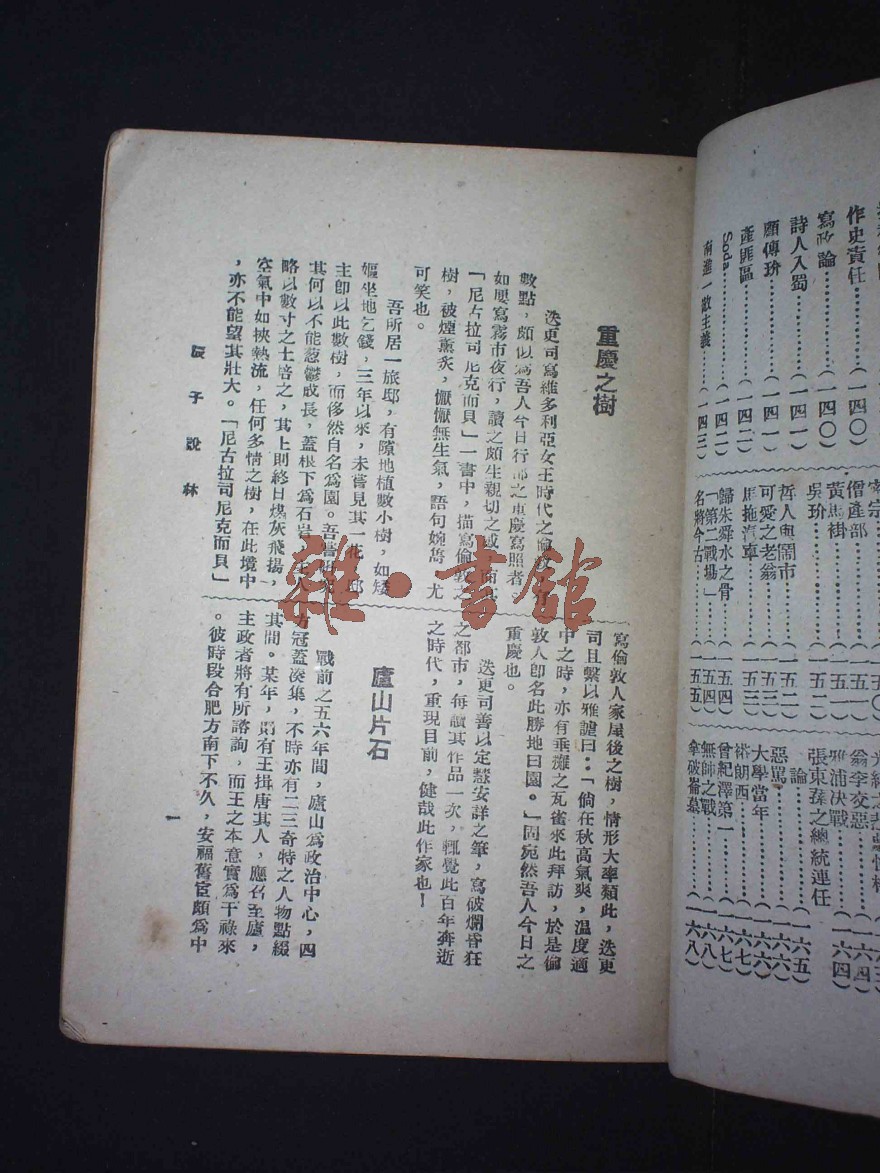 作史責任………(一四〇)
寫政論………(一四〇)
詩人入蜀………(一四一)
顧傳玠………(一四一)
產匪區………(一四二)
Soda………(一四二)
南進一致主義……(一四三)
僧產部………(一五一)
黃馬褂………(一五一)
吳玠………(一五二)
哲人與鬧市………(一五二)
可愛之老翁………(一五三)
馬拖汽車………(一五三)
歸朱舜水之骨……(一五四)
「第二戰場」……(一五四)
名將今古………(一五五)
翁李交惡………(一六四)
雅浦決戰………(一六四)
張東蓀之總統連任
論………(一六五)
惡罵………(一六六)
大學當年………(一六六)
林朗西………(一六七)
曾紀澤第一………(一六七)
無師之戰………(一六八)
拿破崙墓………(一六八)
重慶之樹
迭更司寫維多利亞女王時代之倫敦,
數點,頗似為吾人今日行都之重慶寫照者。
如屢寫霧市夜行,讀之頗生親切之感,而
「尼古拉司尼克而貝」一書中,描寫倫敦之
樹,被煙薰炙,懨懨無生氣,語句婉雋,尤
可笑也。
吾所居一旅邸,有隙地植數小樹,如矮
嫗坐地乞錢,三年以來,未嘗見其一花,邸
主卽以此數樹,而侈然自名為園。吾嘗
其何以不能蔥鬱成長,蓋根下為石岩,
略以數寸之土培之,其上則終日煤灰飛揚,
空氣中如挾熱流,任何多情之樹,在此境中
,亦不能望其壯大。「尼古拉司尼克而貝」
寫倫敦人家屋後之樹,情形大率類此,迭更
司且繫以雅謔曰:「倘在秋高氣爽,溫度適
中之時,亦有垂斃之瓦雀來此拜訪,於是倫
敦人卽名此勝地曰園。」固宛然吾人今日之
重慶也。
迭更司善以定慧安詳之筆,寫破爛昏狂
之都市,每讀其作品一次,輒覺此百年奔逝
之時代,重現目前,健哉此作家也!
廬山片石
戰前之五六年間,廬山為政治中心,四
方冠蓋湊集,不時亦有二三奇特之人物點綴
其間。某年,則有王揖唐其人,應召至廬,
主政者將有所諮詢,而王之本意實為干祿來
。彼時段合肥方南下不久,安福舊宦頗為中
辰子說林
一
雜·書館